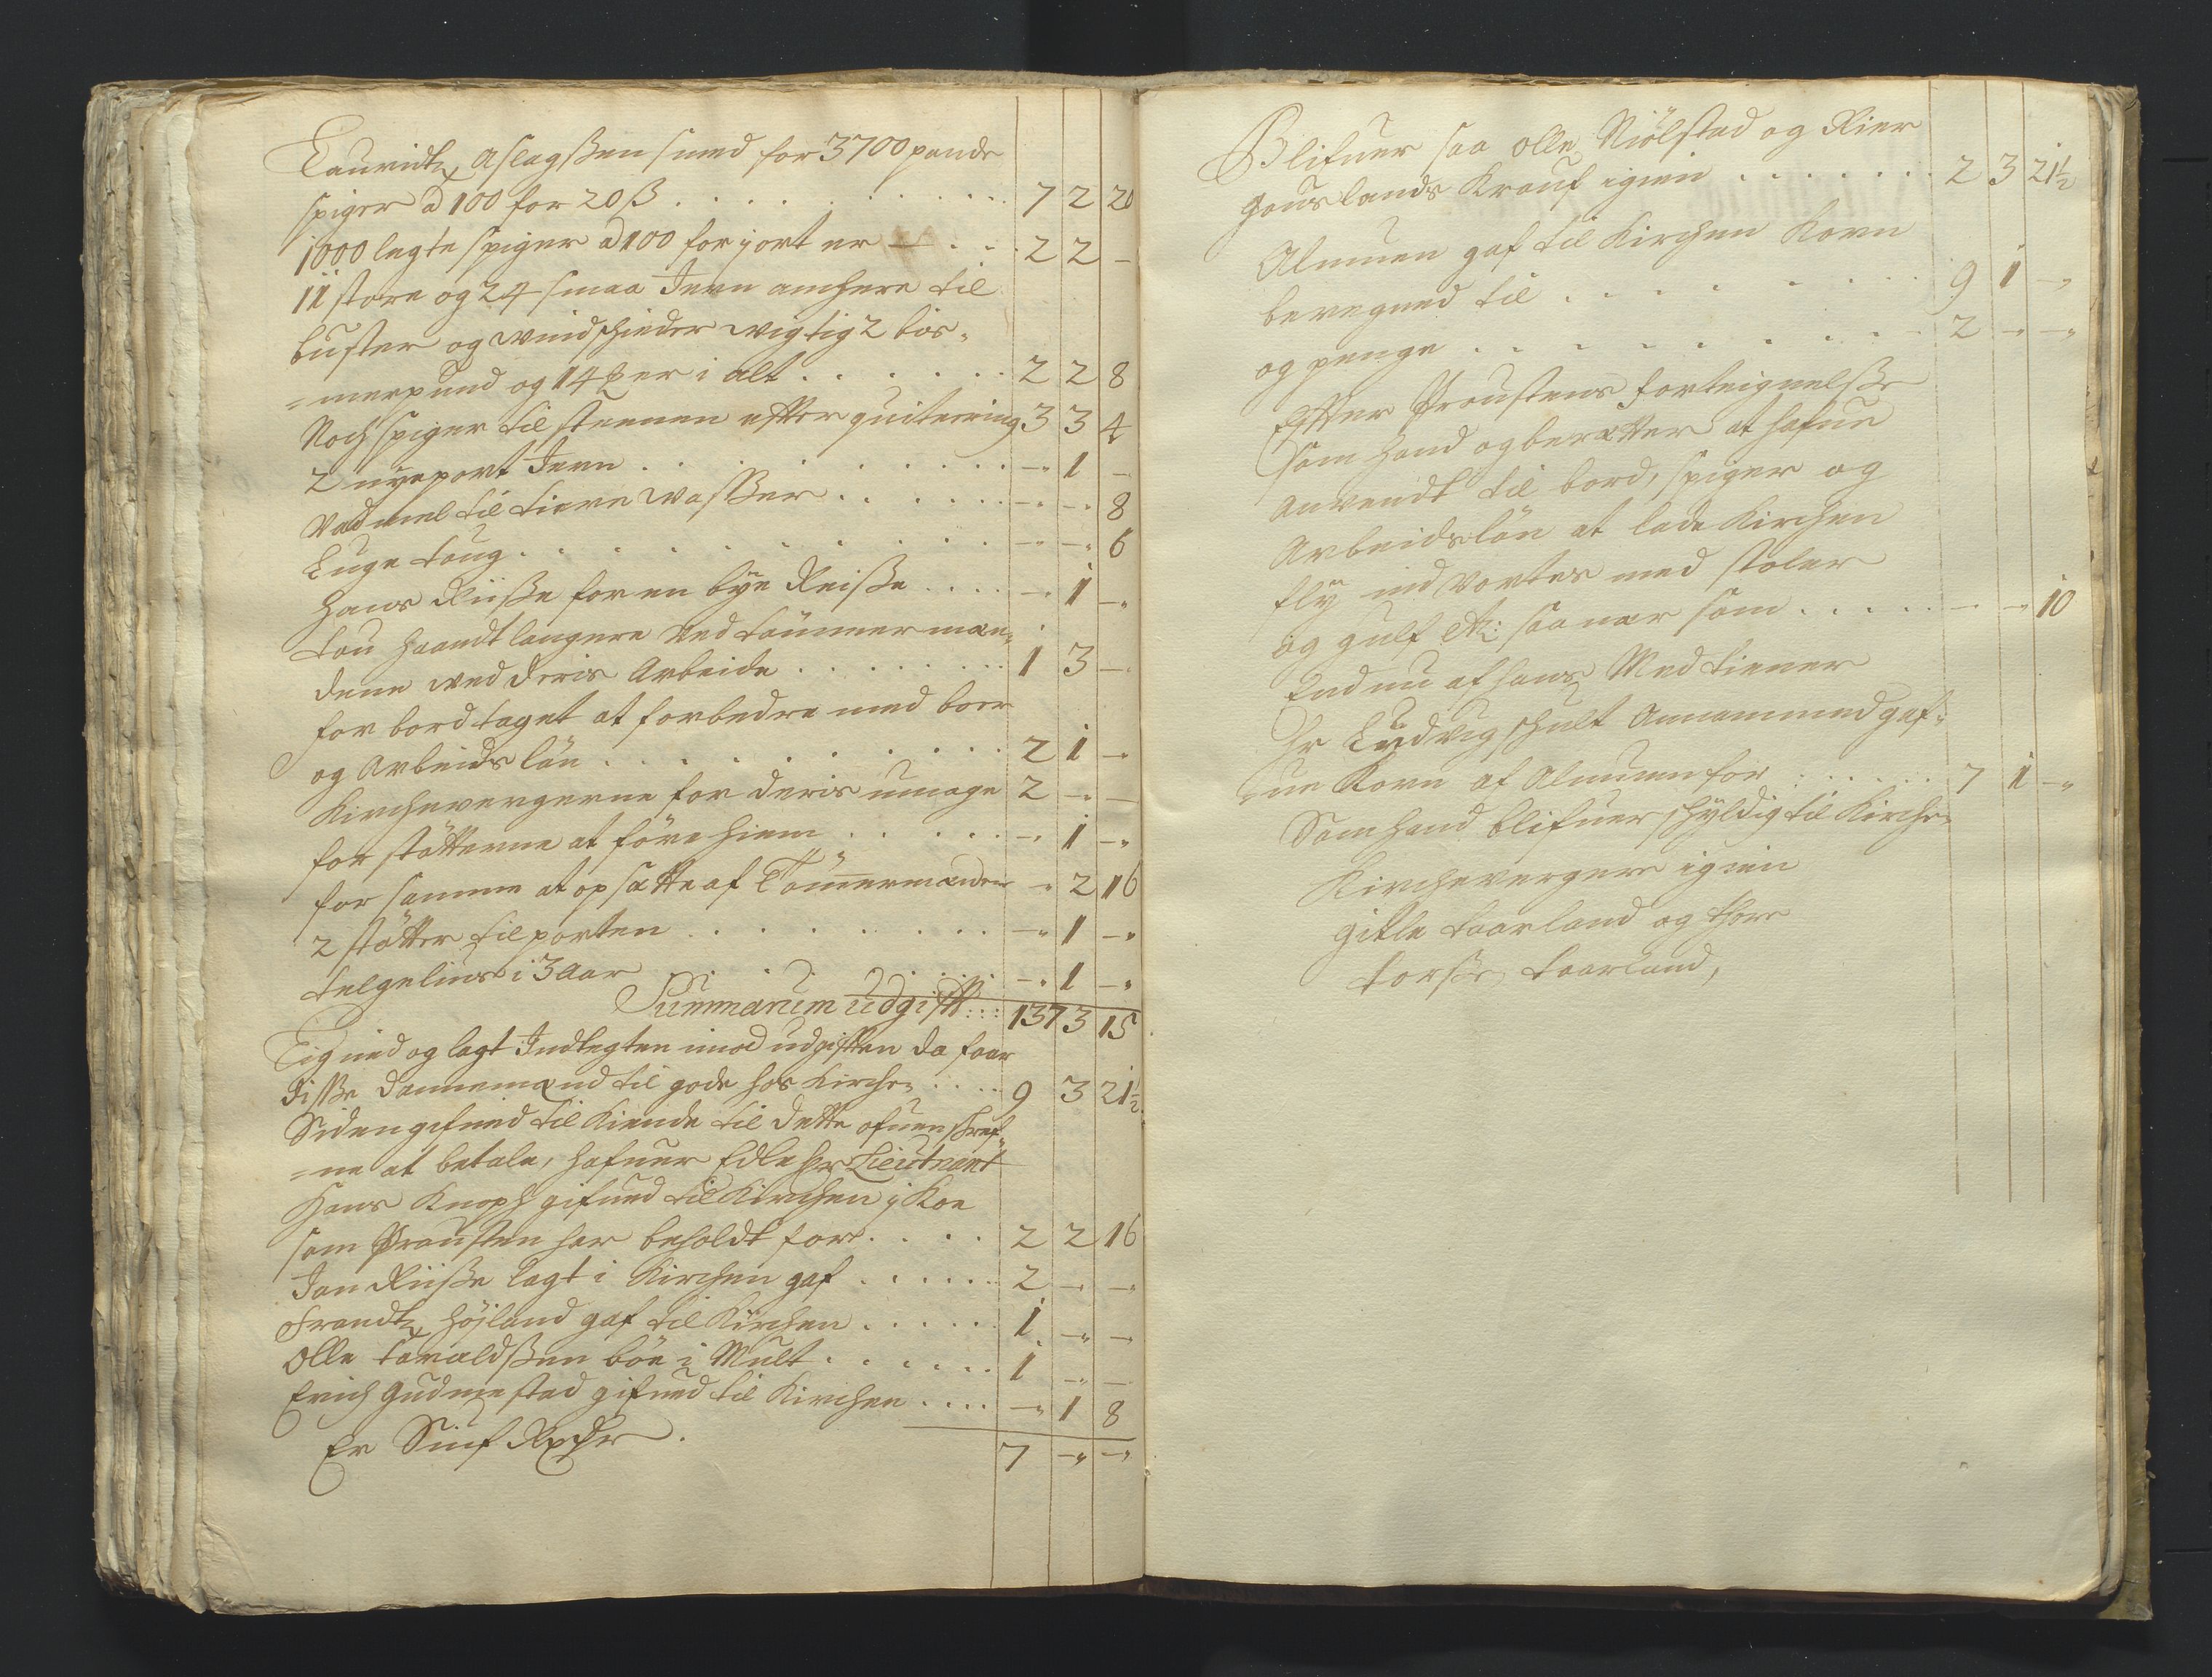 Lauridtz Aslagßen smed for 3700 pande
spiger a 100 for 20 ß . . . . . . 7 2 20
1000 legte spiger a 100 for j ort er — . . . 2 2 —
11 store og 24 smaa Jern anchere til
buster og windschieder wigtig 2 bis-
=merpund og 14 ℔ er i alt . . . . . . 2 2 8
Noch spiger til steenen efter quitering 3 3 4
2 nye port Jern . . . . . . — 1 —
Vadmel til tiere wasßer . . . . . . — — 8
Luge toug . . . . . . — — 6
Hans Riiße for en bye Reiße . . . . — 1 —
tou Haandtlangere ved tømmer mæn-
dene wed deris Arbeide . . . . . . 1 3 —
for bord taget at forbedre med boer
og Arbeids løn . . . . . . 2 1 —
Kirchewergerne for deris umage 2 — —
for støtterne at føre hiem . . . . . — 1 —
for samme at opsætte af Tømermænden — 2 16
2 støtter til porten . . . . . . — 1 —
telgelius i 3 Aar . . . . . . — 1 —
Summarum udgifft : : : 137 3 15
Ligned og lagt Indtegten imod udgiften da faar
disße Dannemænd til gode hos Kirche= . . . . 9 3 21½
Siden gifued til kiende til dette ofuenschref-
=ne at betale, hafuer Edle Hr Lieutnant
Hans Knoph gifued til Kirchen j Koe
som Prousten har beholdt for . . . . 2 2 16
Jan Riiße lagt i Kirchen gaf . . . . . . 2 — —
Frandtz Høiland gaf til Kirchen . . . . . 1 — —
Olle taraldßen bøe i Mult . . . . . . 1 — —
Erich Gudmestad gifued til Kirchen . . . . — 1 8
Er Siuf Rixdlr . 7 — —
Blifuer saa olle Niølstad og Rier
Gouslands Krauf igien . . . . . . . 2 3 21½
Almuen gaf til Kirchen Korn
beregned til . . . . . . . 9 1 —
og penge . . . . . . . . 2 — —
Efter Proustens forteignelsße
som hand og beretter at hafue
anvendt til bord, spiger og
Arbeidsløn at lade Kirchen
fly ind vortes med stoler
og gulf etc: saa nær som . . . . . — — 10
End nu af hans Med tiener
Hr Ludvig schult Annammed gef-
=ue Korn af Almuen for . . . . . . 7 1 —
Som hand blifuer schyldig til Kirche=
Kirchewergere igien
gitle taarland og thore
torßen taarland,